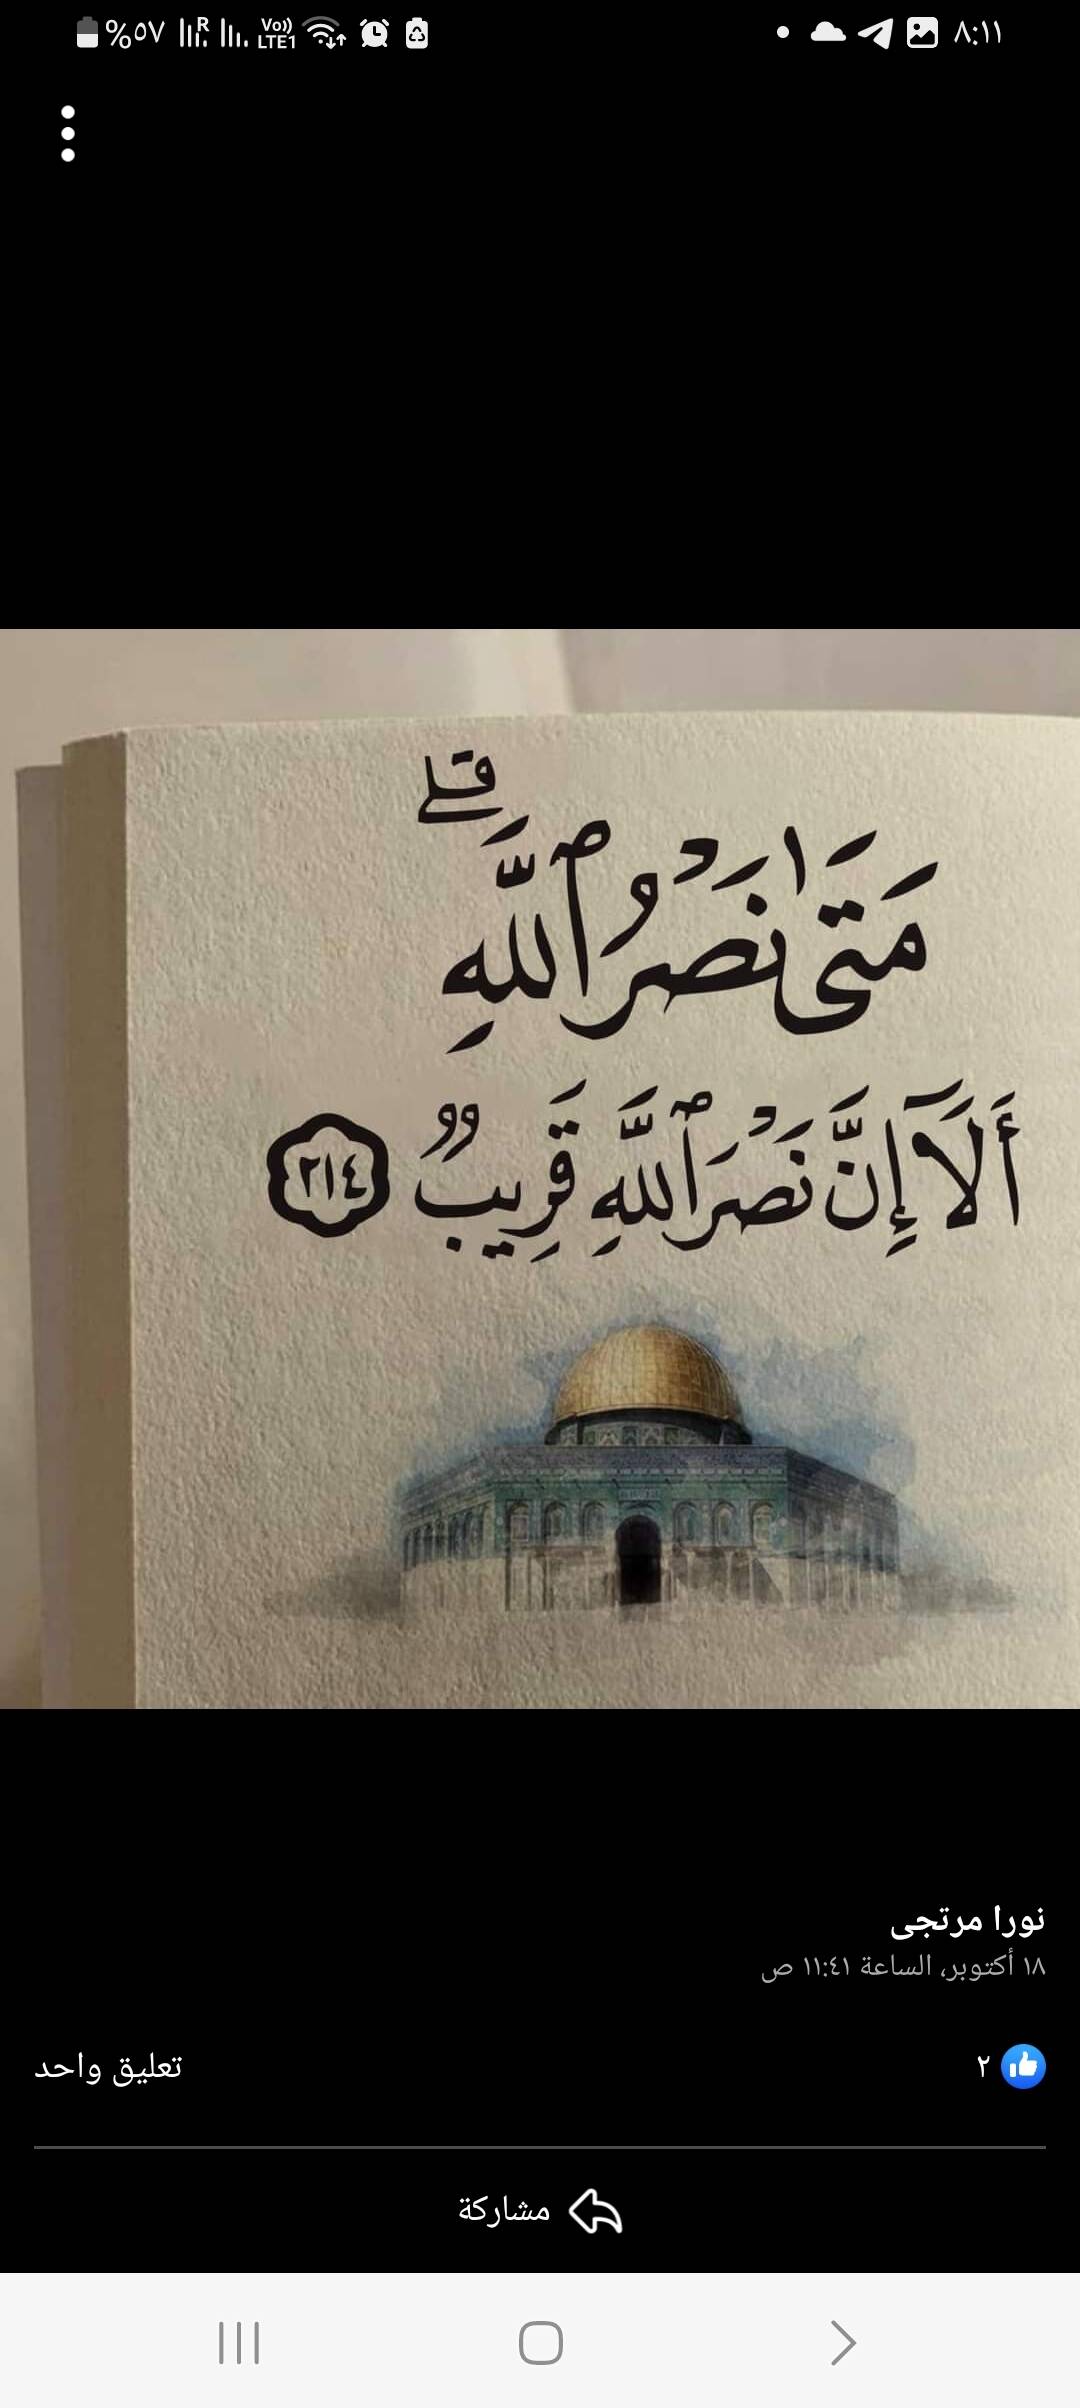 %٥٧ R Vo)) LTE1 ٨:١١
قلے
مَتَىٰ نَصْرُ ٱللَّهِ
أَلَآ إِنَّ نَصْرَ ٱللَّهِ قَرِيبٌ ٢١٤
نورا مرتجى
١٨ أكتوبر، الساعة ١١:٤١ ص
٢
تعليق واحد
مشاركة